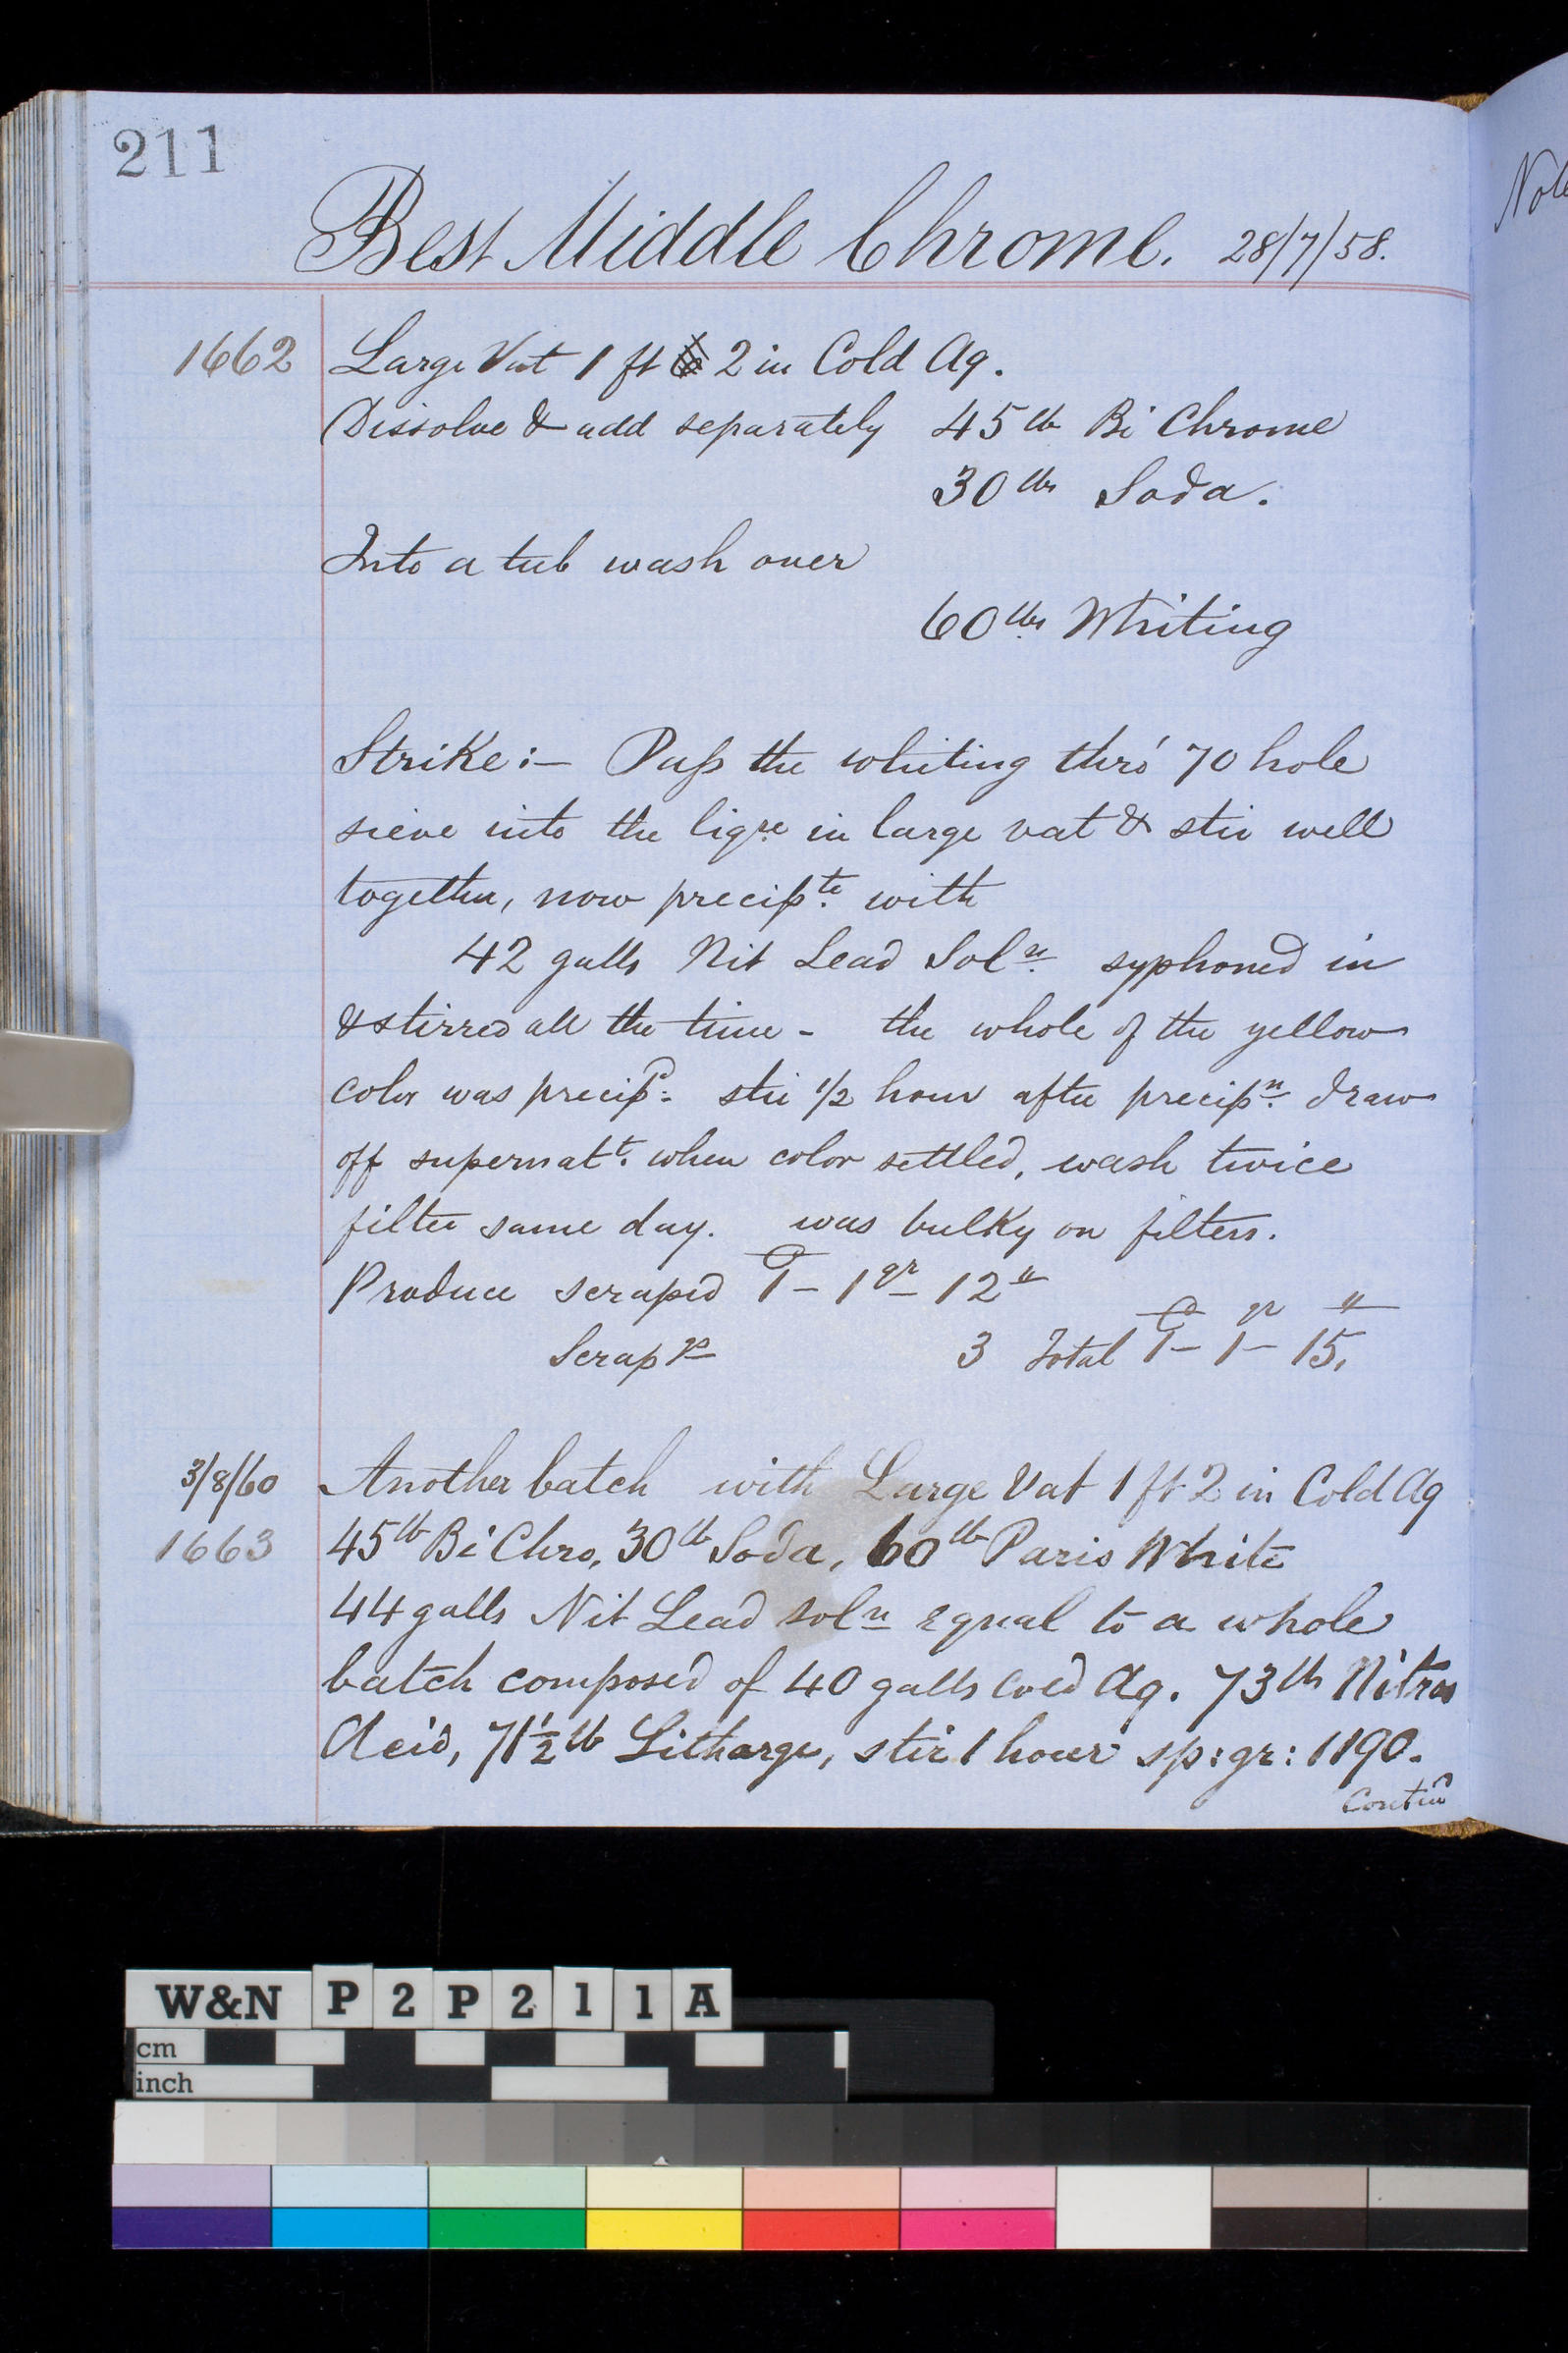 211
Best Middle Chrome. 28/7/58.
1662 Large Vat 1 ft 2 in Cold Aq.
Dissolve & add separately 45 lb Bi Chrome
30 lbs Soda.
Into a tub wash over
60 lbs Whiting
Strike:— Paſs the whiting thro' 70 hole
sieve into the liqre in large vat & stir well
together, now precipte with
42 galls Nit Lead Soln syphoned in
& stirred all the time - the whole of the yellow
color was precipd stir 1/2 hour after precipn draw
off supernatt. when color settled, wash twice
filter same day. was bulky on filters.
Produce scraped 1 - 1 qr - 12 lb
Scraps 3 Total 1 - 1 - 15.
3/8/60 Another batch with Large Vat 1 ft 2 in Cold Aq
1663 45 lb Bi Chro, 30 lb Soda, 60 lb Paris White
44 galls Nit Lead soln equal to a whole
batch composed of 40 galls cold Aq. 73 lb Nitros
Acid, 71½ lb Litharge, stir 1 hour sp: gr: 1190.
Contind
Note
W&N P2P211A
cm
inch